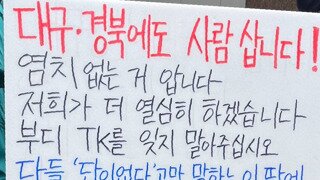 대구·경북에도 사람 삽니다!
염치 없는 거 압니다
저희가 더 열심히 하겠습니다
부디 TK를 잊지 말아주십시오
다들 '답이없다'고만 말하는 이 땅에